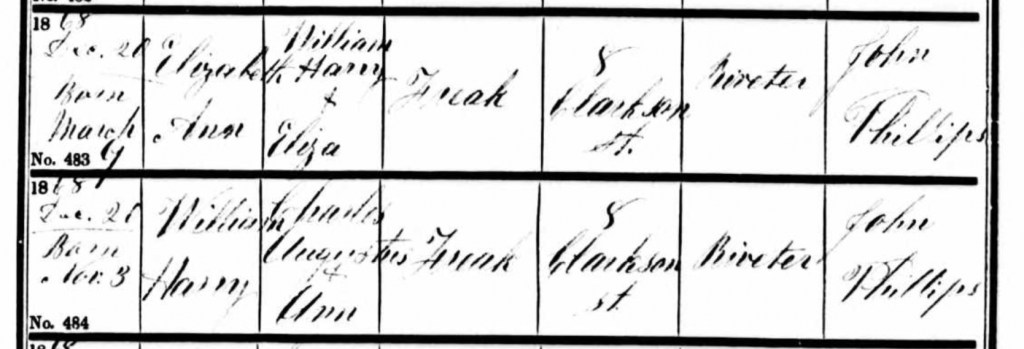 1868
Dec. 20
Born
March 9
No. 483
Elizabeth
Ann
William
Harry
&
Eliza
Freak
8
Clarkson
st.
Riveter
John
Phillips
1868
Dec. 20
Born
Nov. 3
No. 484
William
Harry
Charles
Augustus
&
Ann
Freak
8
Clarkson
st
Riveter
John
Phillips